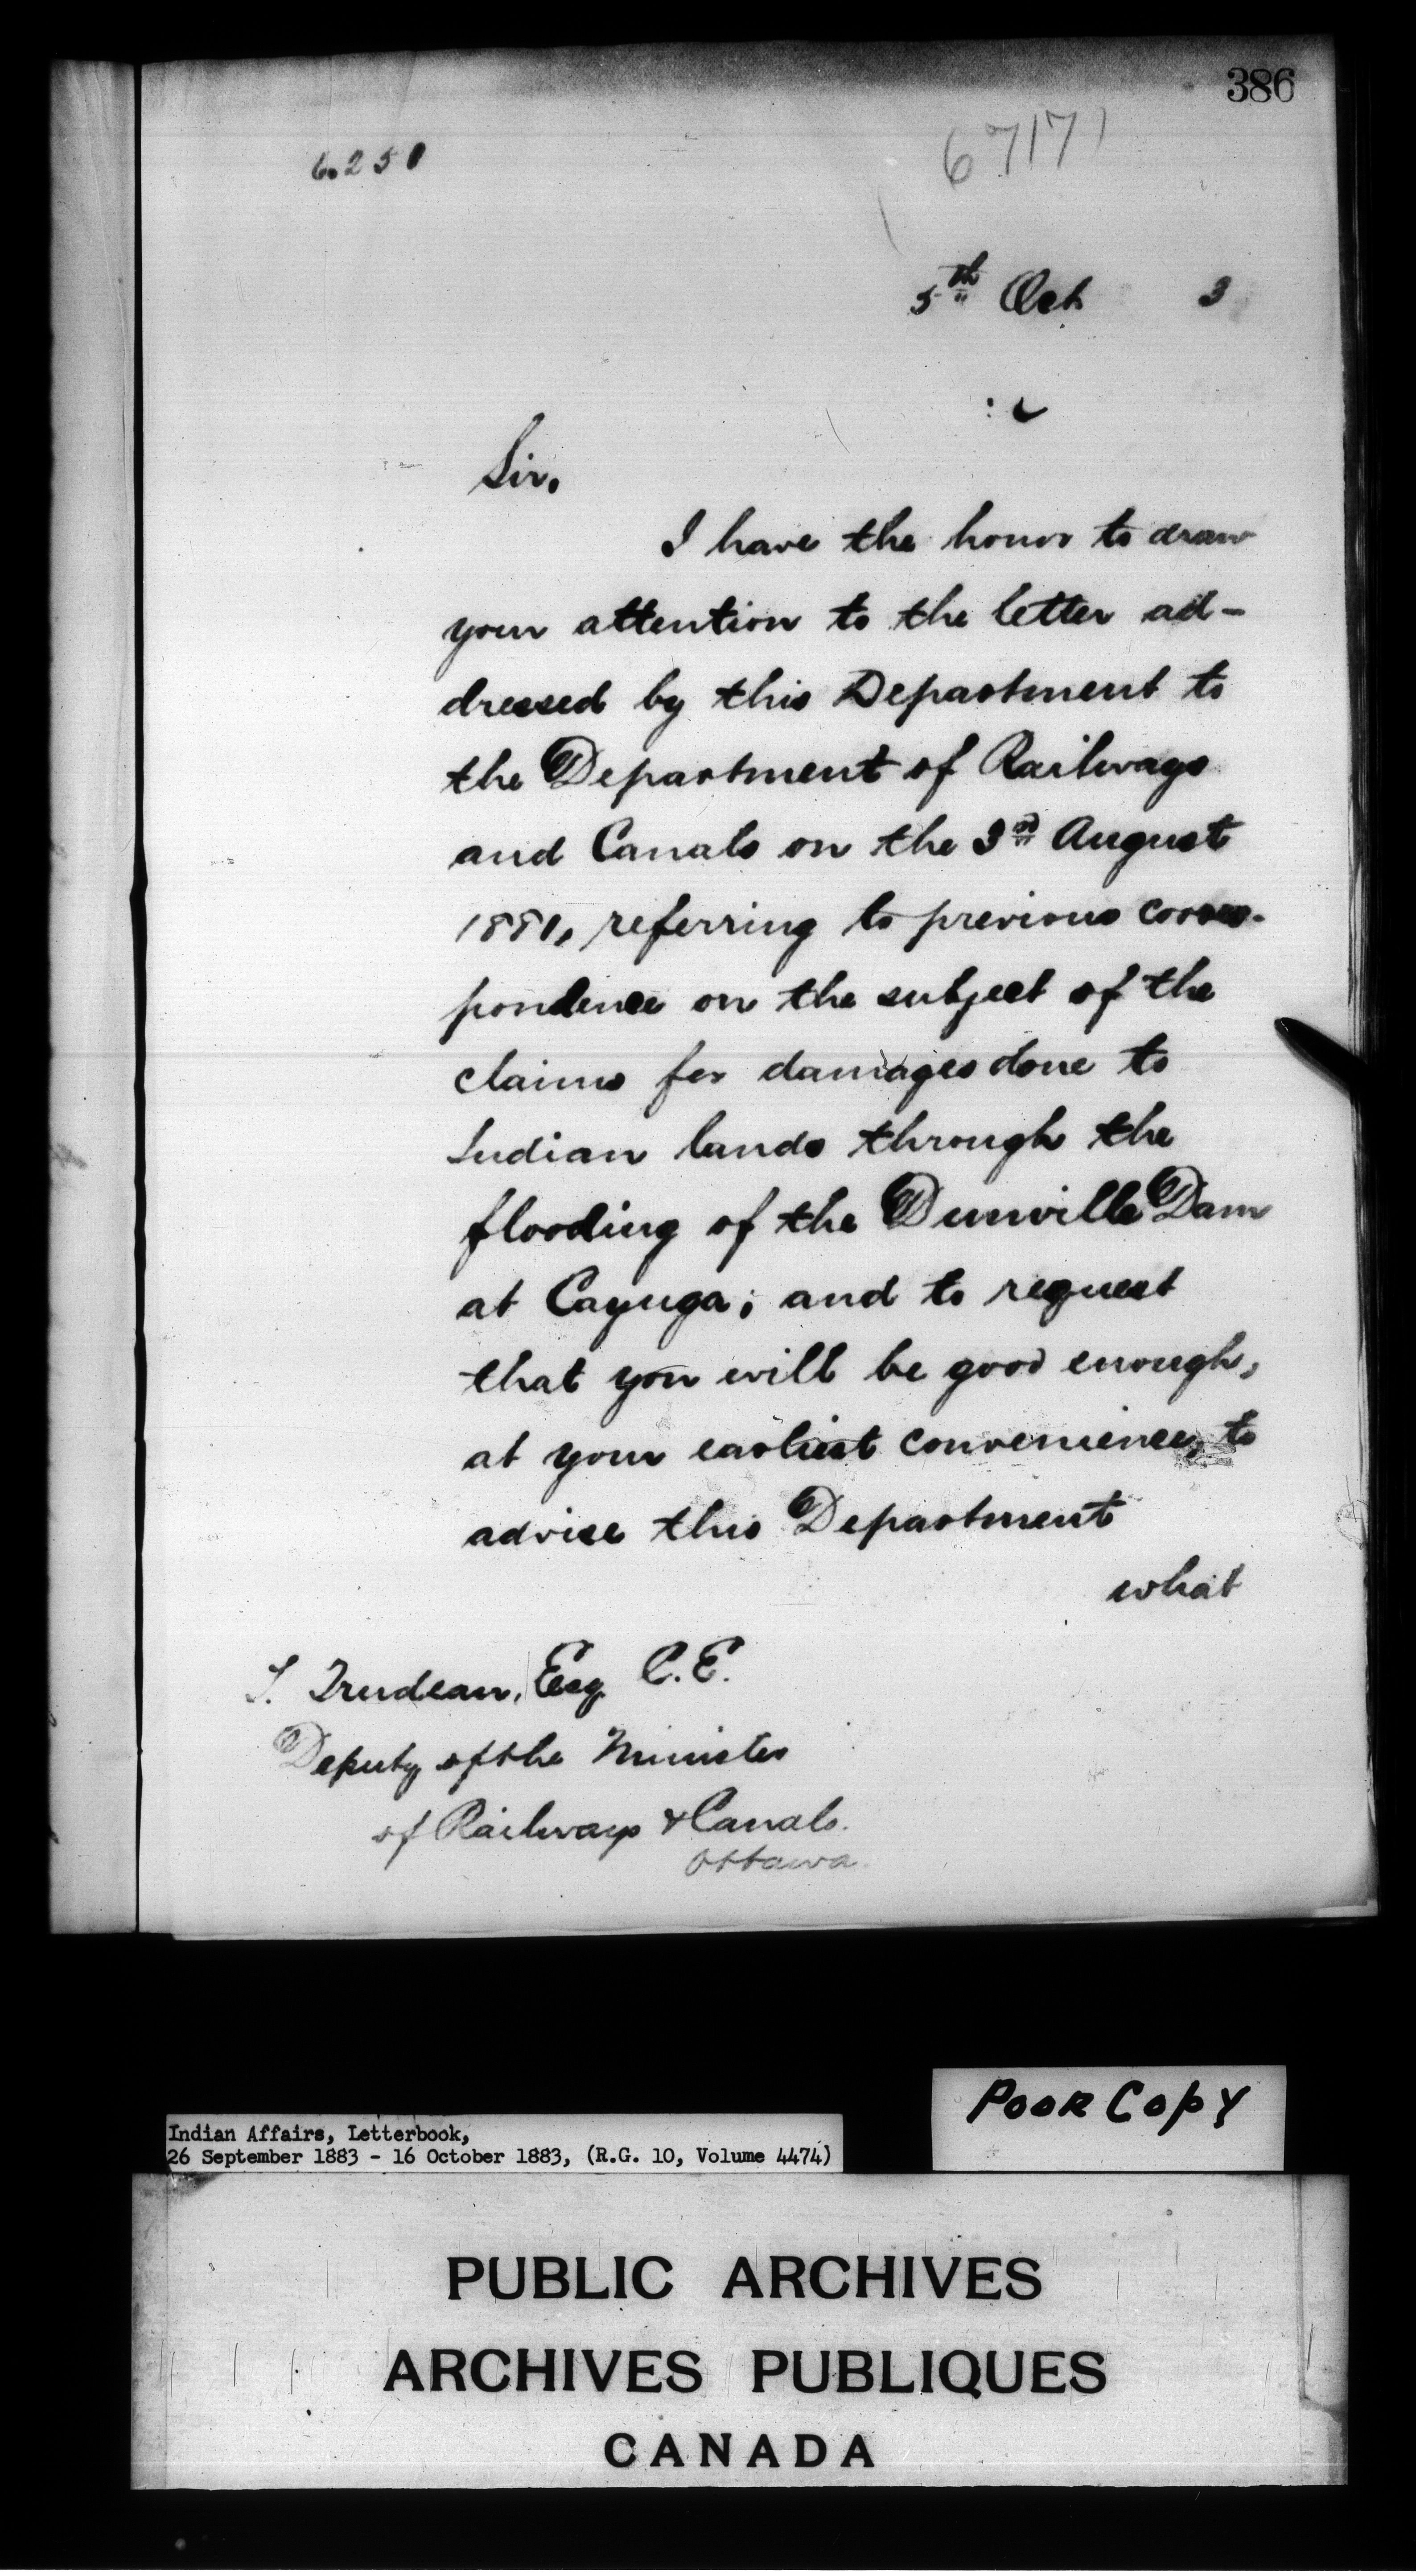 386
67171
6.250
5th Oct 3
Sir,
I have the honor to draw
your attention to the letter ad-
dressed by this Department to
the Department of Railways
and Canals on the 3rd August
1881, referring to previous corres-
pondence on the subject of the
claims for damages done to
Indian lands through the
flooding of the Dunville Dam
at Cayuga; and to request
that you will be good enough,
at your earliest convenience, to
advise this Department
what
T. Trudeau, Esq. C.E.
Deputy of the Minister
of Railways & Canals.
Ottawa.
POOR COPY
Indian Affairs, Letterbook,
26 September 1883 - 16 October 1883, (R.G. 10, Volume 4474)
PUBLIC ARCHIVES
ARCHIVES PUBLIQUES
CANADA